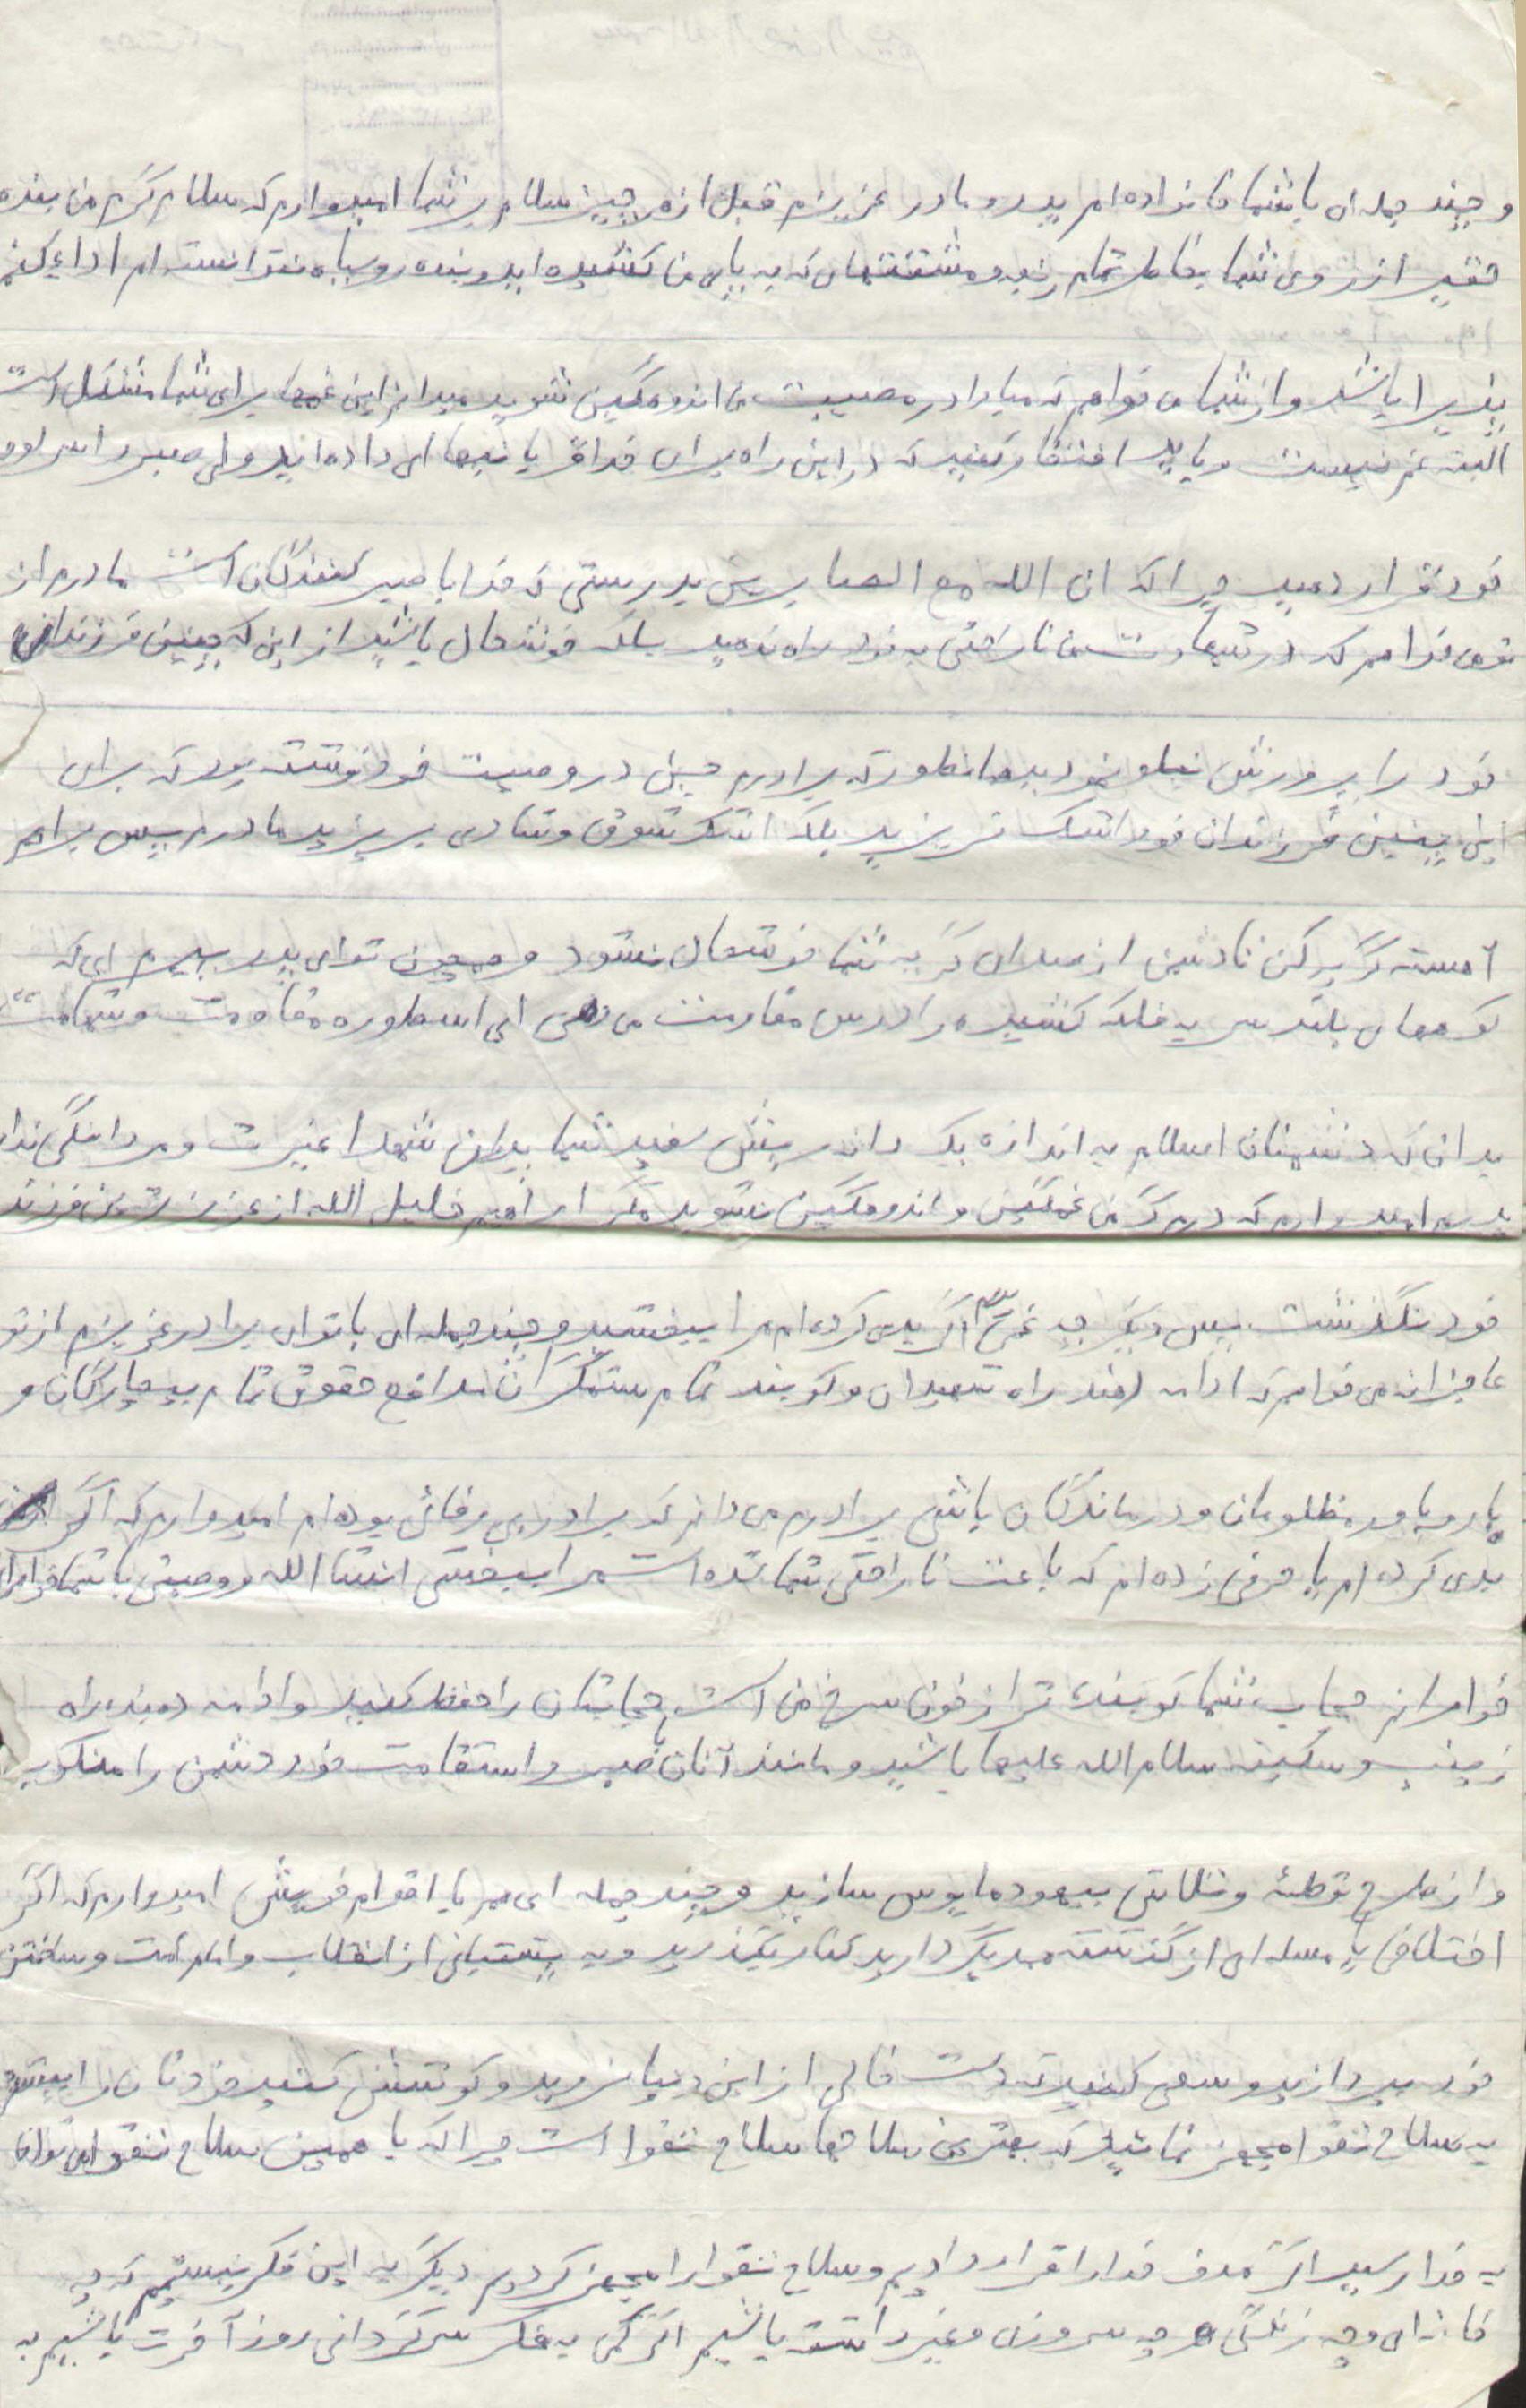 و چند جمله ای با شما خانواده ام پدر و مادر عزیزم قبل از هر چیز سلام بر شما امیدوارم که سلام گرم من بنده
حقیر از روی شما بخاطر تمام رنج و مشقتهای که به پای من کشیده اید و بنده روسیاه نتوانسته ام اداء کنم
پذیرا باشد و از شما می خواهم که مبادا در مصیبت من اندوهگین شوید میدانم این غمها برای شما مشکل است
البته غم نیست و باید افتخار کنید که در این راه برای خدا قربانیهای داده اید ولی صبر را سر لوحه
خود قرار دهید چرا که ان الله مع الصابرین بدرستی که خدا با صبر کنندگان است مادرم از
تو می خواهم که در شهادت من ناراحتی به خود راه ندهید بلکه خوشحال باشید از این که چنین فرزندانی
خود را پرورش نیکو نمودید همانطور که برادرم حسن در وصیت خود نوشته بود که برای
این چنین فرزندان خود اشک نریزید بلکه اشک شوق و شادی بریزید مادرم پس برایم
آهسته گریه کن تا دشمن از صدای گریه شما خوشحال نشود و همچون توای پدر پیرم ای که
کوههای بلند سر به فلک کشیده را درس مقاومت می دهی ای اسطوره مقاومت و شهامت
بدان که دشمنان اسلام به اندازه یک دانه ریش سفید شما پدران شهدا غیرت و مردانگی ندارند
پدرم امیدوارم که در مرگ من غمگین و اندوهگین نشوید مگر ابراهیم خلیل الله از عزیزترین فرزند
خود نگذشت پس دیگر چه غم پدرم اگر بدی کرده ام مرا ببخشید و چند جمله ای با توای برادر عزیزم از تو
عاجزانه می خواهم که ادامه دهنده راه شهیدان و کوبنده تمام ستمگران مدافع حقوق تمام بیچارگان و
یار و یاور مظلومان و درماندگان باشی برادرم می دانم که برادر بی وفائی بوده ام امیدوارم که اگر
بدی کرده ام یا حرفی زده ام که باعث ناراحتی شما شده است مرا ببخشی انشا الله و وصیتی با شما خواهران
خواهرانم حجاب شما کوبنده تر از خون سرخ من است حجابتان را حفظ کنید و ادامه دهنده راه
زینب و سکینه سلام الله علیها باشید و مانند آنان با صبر و استقامت خود دشمن را منکوب
و از طرح توطئه و تلاش بیهوده مایوس سازید و چند جمله ای هم با اقوام خویش امیدوارم که اگر
اختلافی یا مسله ای از گذشته همدیگر دارید کنار بگذارید و به پشتیبانی از انقلاب و امام امت و ساختن
خود بپردازید و سعی کنید که دست خالی از این دنیا نروید و کوشش کنید خودتان را بیشتر
به سلاح تقوا مجهز نمائید که بهترین سلاحها سلاح تقوا است چرا که با همین سلاح تقوا می توان
به خدا رسید اگر هدف خدا را قرار دادیم و سلاح تقوا را مجهز کردیم دیگر به این فکر نیستیم که چه
خانه ای و چه زندگی و چه سر وزی و غیر داشته باشیم اگر کمی به فکر سرگردانی روز آخرت باشیم به